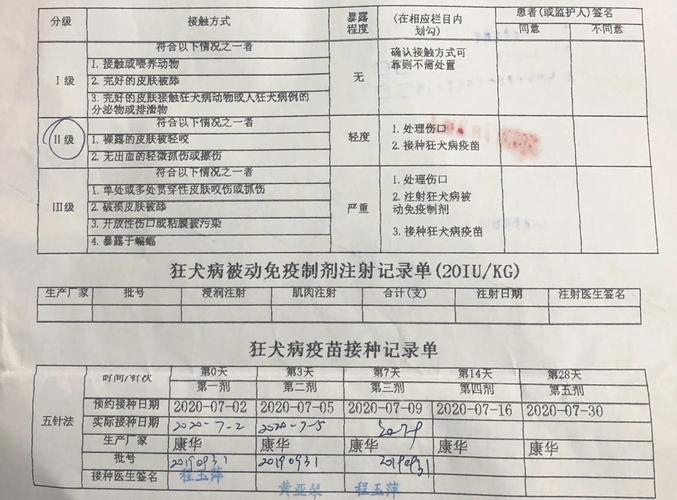 分级 接触方式 暴露程度 (在相应栏目内划勾) 患者(或监护人)签名
同意 不同意
I级 符合以下情况之一者 无 确认接触方式可靠则不需处置
1. 接触或喂养动物
2. 完好的皮肤被舔
3. 完好的皮肤接触狂犬病动物或人狂犬病例的分泌物或排泄物
II级 符合以下情况之一者 轻度 1. 处理伤口
1. 裸露的皮肤被轻咬 2. 接种狂犬病疫苗
2. 无出血的轻微抓伤或擦伤
III级 符合以下情况之一者 严重 1. 处理伤口
1. 单处或多处贯穿性皮肤咬伤或抓伤 2. 注射狂犬病被动免疫制剂
2. 破损皮肤被舔
3. 开放性伤口或粘膜被污染 3. 接种狂犬病疫苗
4. 暴露于蝙蝠
狂犬病被动免疫制剂注射记录单(20IU/KG)
生产厂家 批号 浸润注射 肌肉注射 合计(支) 注射日期 注射医生签名
狂犬病疫苗接种记录单
五针法 时间/针次 第0天 第3天 第7天 第14天 第28天
第一剂 第二剂 第三剂 第四剂 第五剂
预约接种日期 2020-07-02 2020-07-05 2020-07-09 2020-07-16 2020-07-30
实际接种日期 2020-7-2 2020-7-5
生产厂家 康华 康华 康华 康华 康华
批号 20190931 20190931 20190931
接种医生签名 程玉萍 黄亚琴 程玉萍